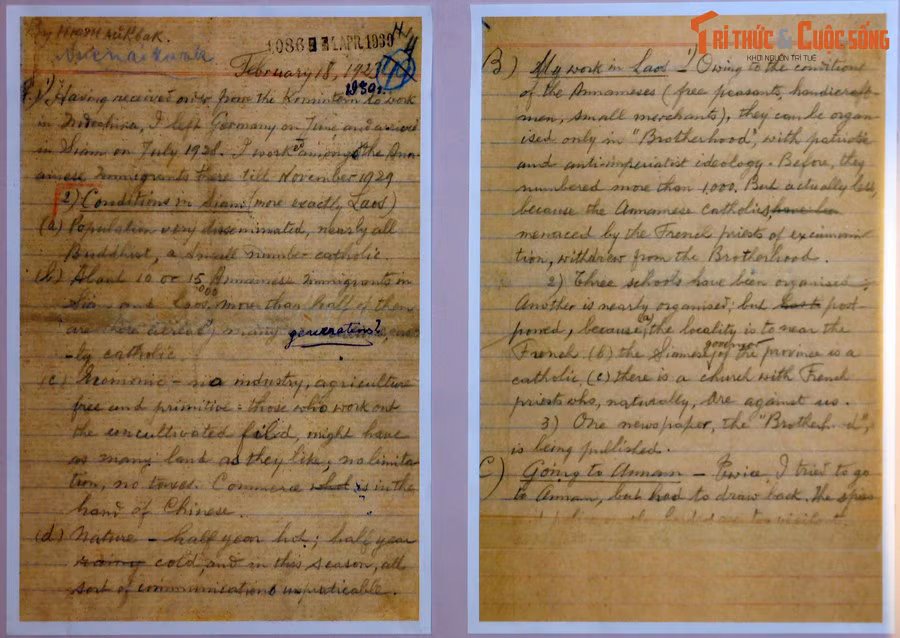 By
Nuenaikwak
1086 ★ -1 APR. 1930
February 18, 1929
1930г.
A) 1) Having received order from the Komintern to work
in Indochina, I left Germany on June and arrived
in Siam on July 1928. I worked amongst the Ana-
amese immigrants there till November 1929
2) Conditions in Siam (more exactly, Laos)
(a) Population very disseminated, nearly all
Buddhist, a small number catholic.
(b) About 10 or 15,000 Annamese immigrants in
Siam and Laos, more than half of them
are there since many generations?
-ly catholic.
(c) Iconomic - no industry, agriculture
free and primitive: those who work out
the uncultivated fild, might have
as many land as they like; no limita-
tion, no taxes. Commerce is in the
hand of Chinese.
(d) Nature - half year hot; half year
rainy cold, and in this season, all
sort of communications unpraticable.
TRI THỨC & CUỘC SỐNG
KHƠI NGUỒN TRÍ TUỆ
B) My work in Laos - 1) Owing to the conditions
of the Annameses (free peasants, handicrafts-
men, small merchants), they can be organ-
ised only in "Brotherhood", with patriotic
and antiimperialist ideology. Before, they
numbered more than 1,000. But actually less,
because the Annamese catholics have been
menaced by the French priests of excummunica-
tion, withdrew from the Brotherhood.
2) Three schools have been organised;
Another is nearly organised; but post-
poned, because (a) the locality is to near the
French (b) the Siamese governor of the province is a
catholic (c) there is a church with French
priests who, naturally, are against us.
3) One newspaper, the "Brotherhood",
is being published.
C) Going to Annam - Twice, I tried to go
to Annam, but had to draw back. The spies
and police on the border are too vigilant